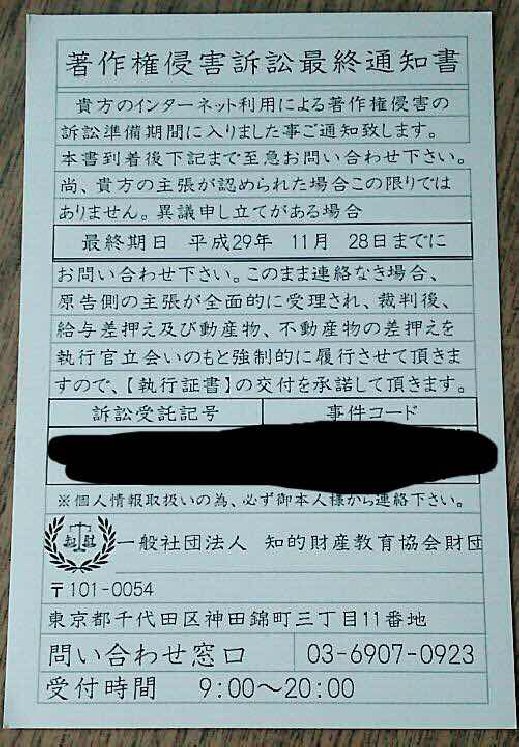 著作権侵害訴訟最終通知書
貴方のインターネット利用による著作権侵害の
訴訟準備期間に入りました事ご通知致します。
本書到着後下記まで至急お問い合わせ下さい。
尚、貴方の主張が認められた場合この限りでは
ありません。異議申し立てがある場合
最終期日 平成29年 11月 28日までに
お問い合わせ下さい。このまま連絡なき場合、
原告側の主張が全面的に受理され、裁判後、
給与差押え及び動産物、不動産物の差押えを
執行官立会いのもと強制的に履行させて頂きま
すので、【執行証書】の交付を承諾して頂きます。
訴訟受託記号 事件コード
※個人情報取扱いの為、必ず御本人様から連絡下さい。
一般社団法人 知的財産教育協会財団
〒101-0054
東京都千代田区神田錦町三丁目11番地
問い合わせ窓口 03-6907-0923
受付時間 9:00～20:00